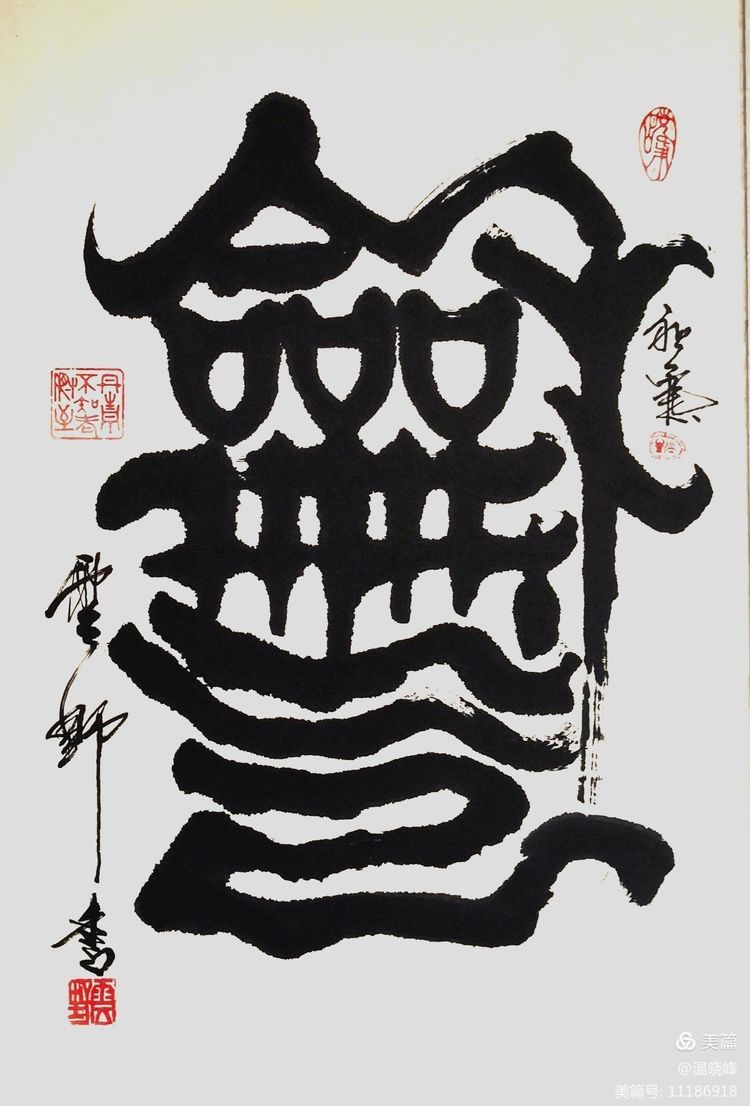 龢气
和氣
丹青不知老將至
雲野书
雲野
美篇
@温晓峰
美篇号: 11186918